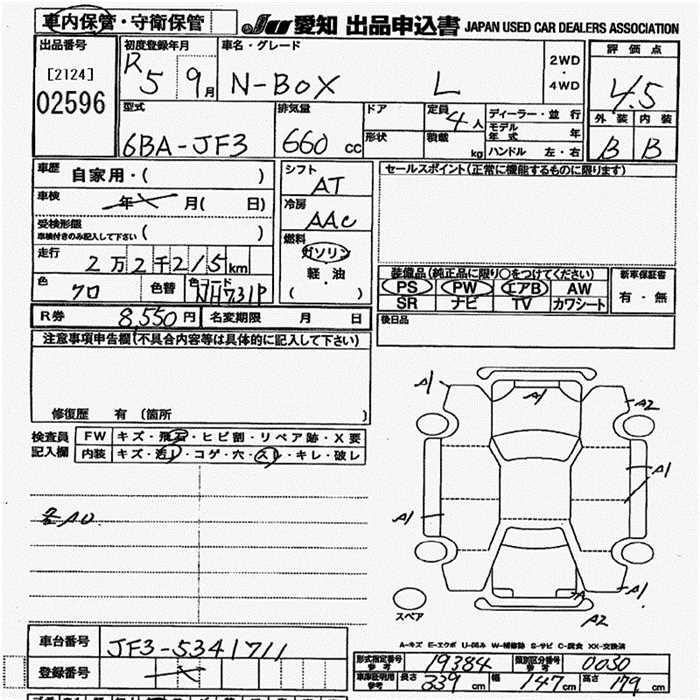 車内保管・守衛保管
JU 愛知 出品申込書 JAPAN USED CAR DEALERS ASSOCIATION
出品番号
[2124]
02596
初度登録年月
R5 9月
車名・グレード
N-BOX L
2WD
・
4WD
評価点
4.5
外装 内装
B B
型式
6BA-JF3
排気量
660 cc
ドア
形状
定員 4人
積載 kg
ディーラー・並行
モデル年式 年
ハンドル 左・右
車歴 自家用・( )
車検 年 月( 日)
受検形態
車検付きのみ記入して下さい ( )
走行 2万2千215km
色 クロ 色替 色コード NH731P
シフト
AT
冷房
AAC
燃料
ガソリン
軽・油
( )
セールスポイント(正常に機能するものに限ります)
装備品(純正品に限り○をつけてください)
PS PW エアB AW
SR ナビ TV カワシート
新車保証書
有・無
R券 8,550円 名変期限 月 日
後日品
注意事項申告欄(不具合内容等は具体的に記入して下さい)
修復歴 有(箇所 )
検査員
記入欄
FW キズ・飛石・ヒビ割・リペア跡・X要
内装 キズ・汚レ・コゲ・穴・スレ・キレ・破レ
各A0
A1
A1
A2
A1
A1
A
A1
A2
スペア
A-キズ E-エクボ U-凹み W-補修跡 S-サビ C-腐食 XX-交換済
車台番号 JF3-5341711
登録番号
形式指定番号 参考 19384 類別区分番号 参考 0030
車庫証明用 参考 長さ 339cm 幅 147cm 高さ 179cm